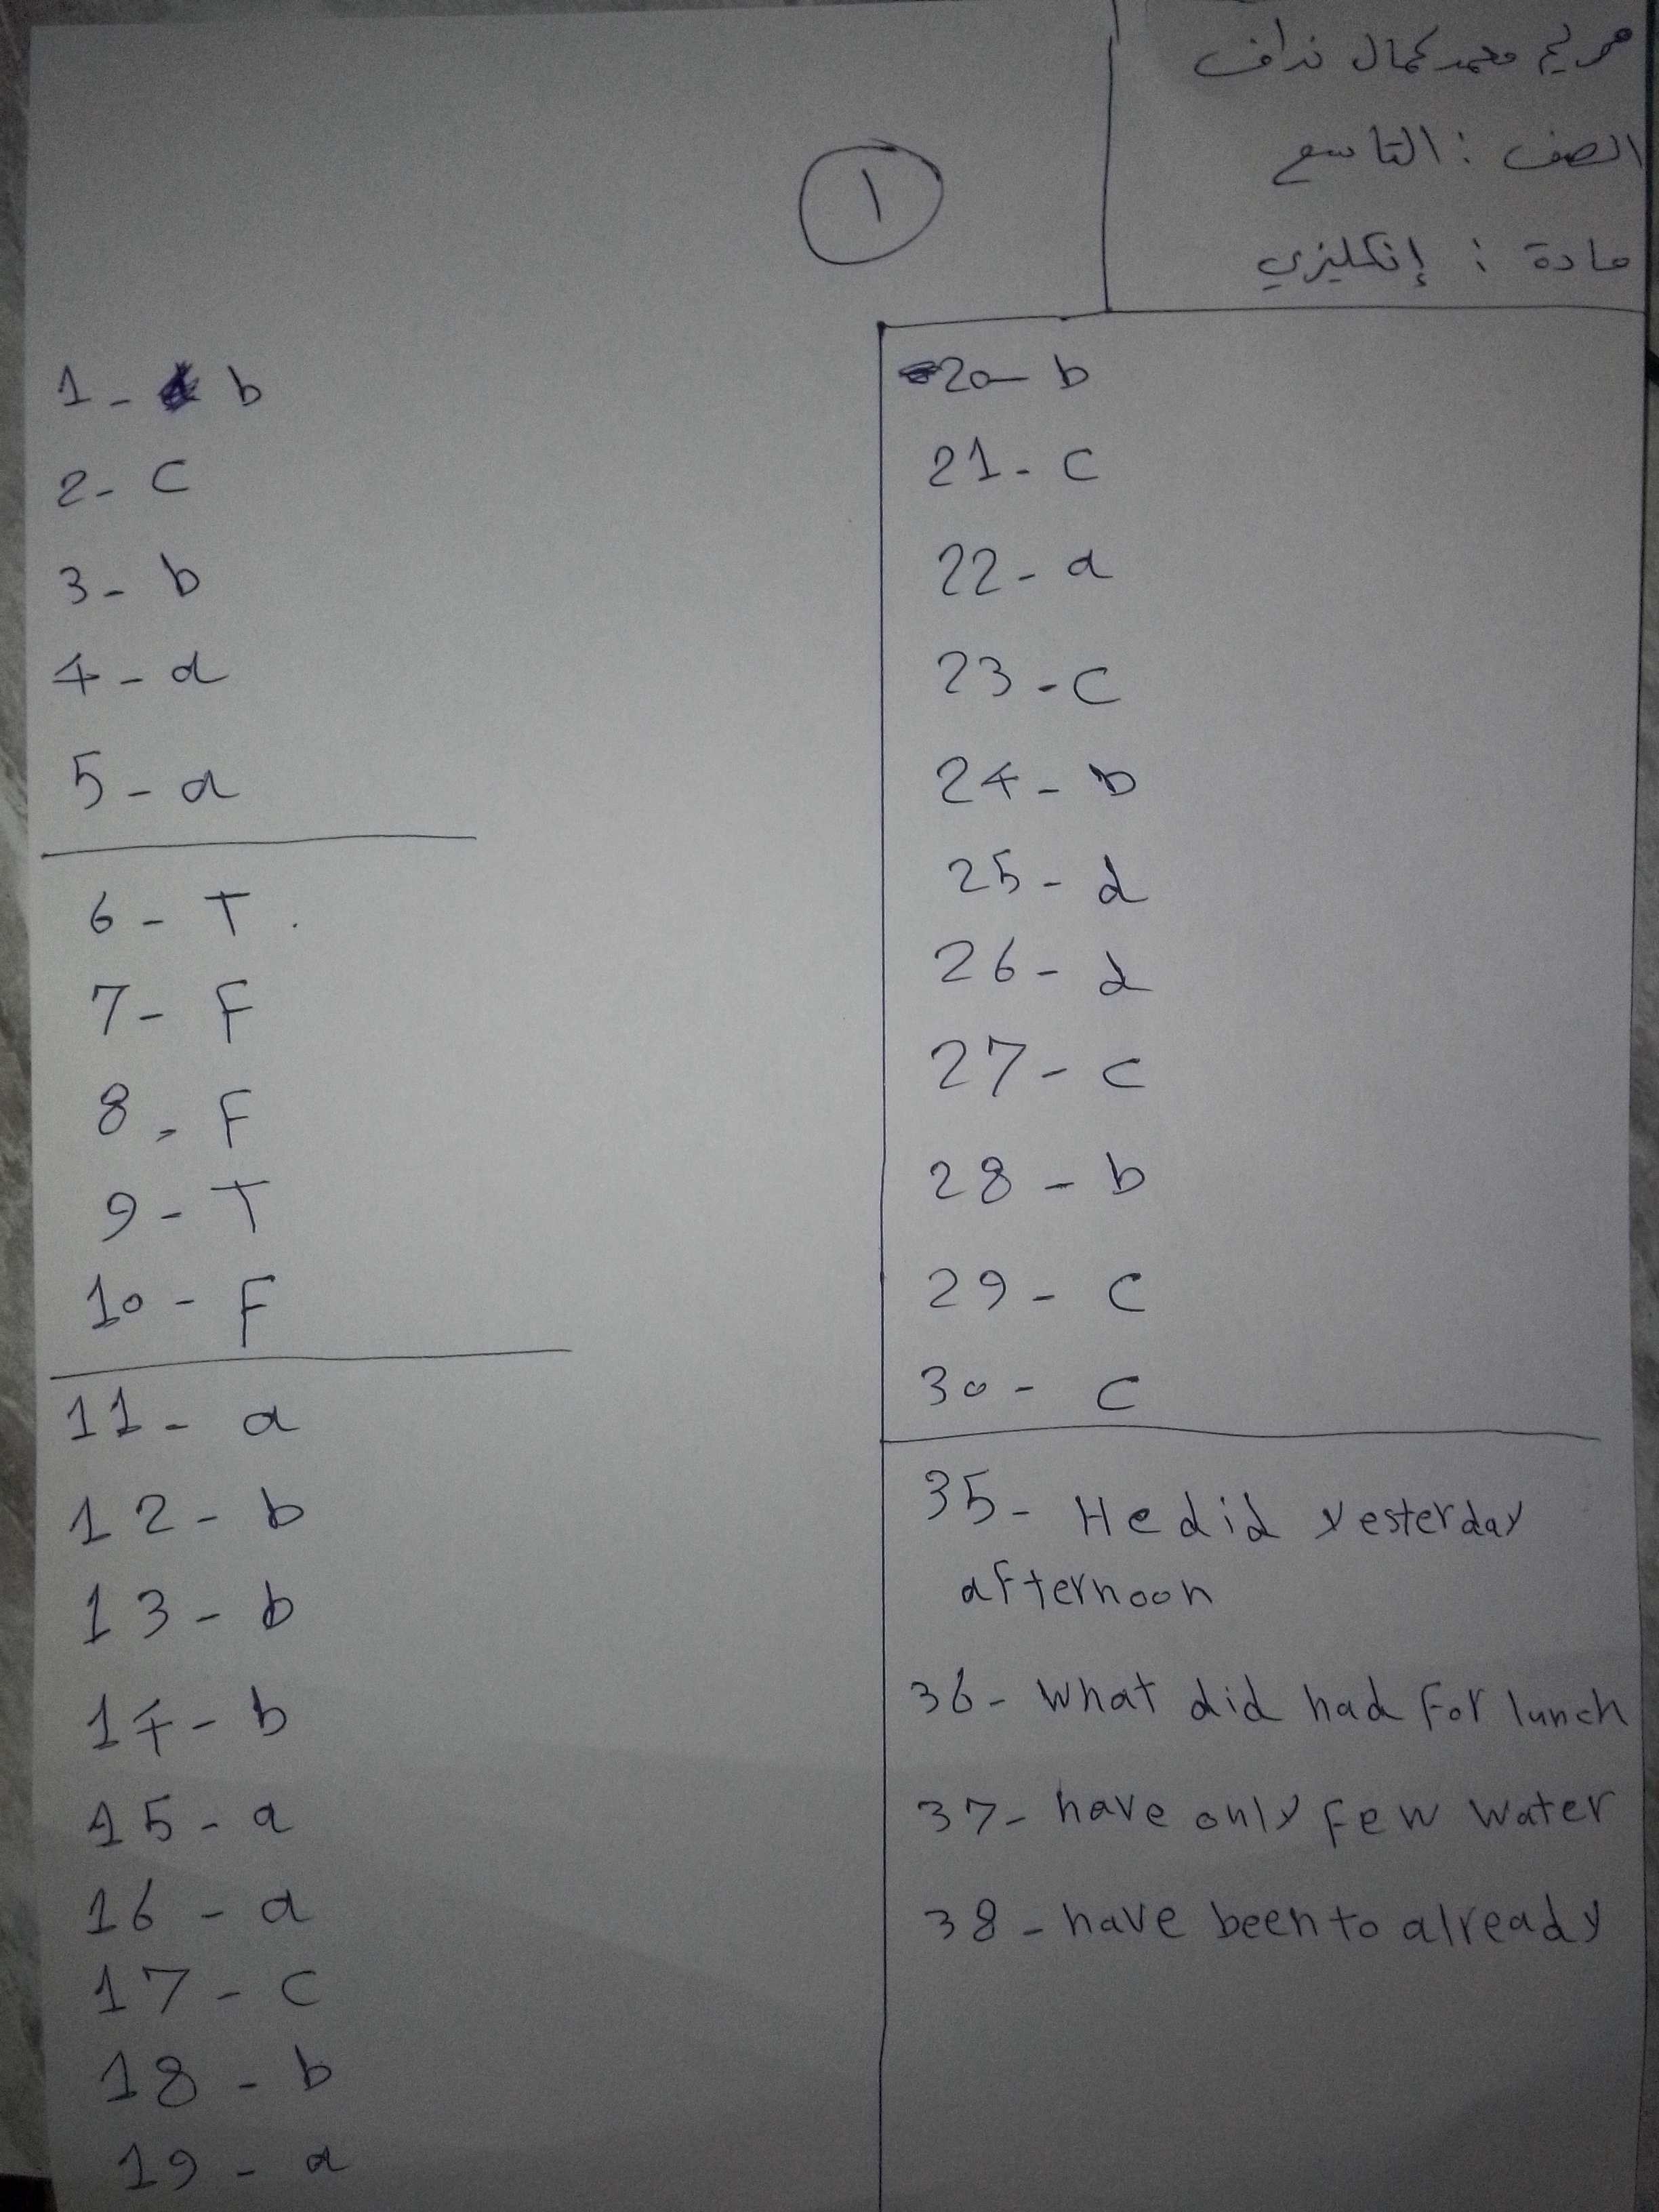 مريم محمد كمال نداف
الصف : التاسع
مادة : إنكليزي
١
1- b
2- c
3- b
4- d
5- a
6- T
7- F
8- F
9- T
10- F
11- a
12- b
13- b
14- b
15- a
16- a
17- c
18- b
19- a
20- b
21- c
22- a
23- c
24- b
25- d
26- d
27- c
28- b
29- c
30- c
35- He did yesterday
afternoon
36- what did had for lunch
37- have only few water
38- have been to already